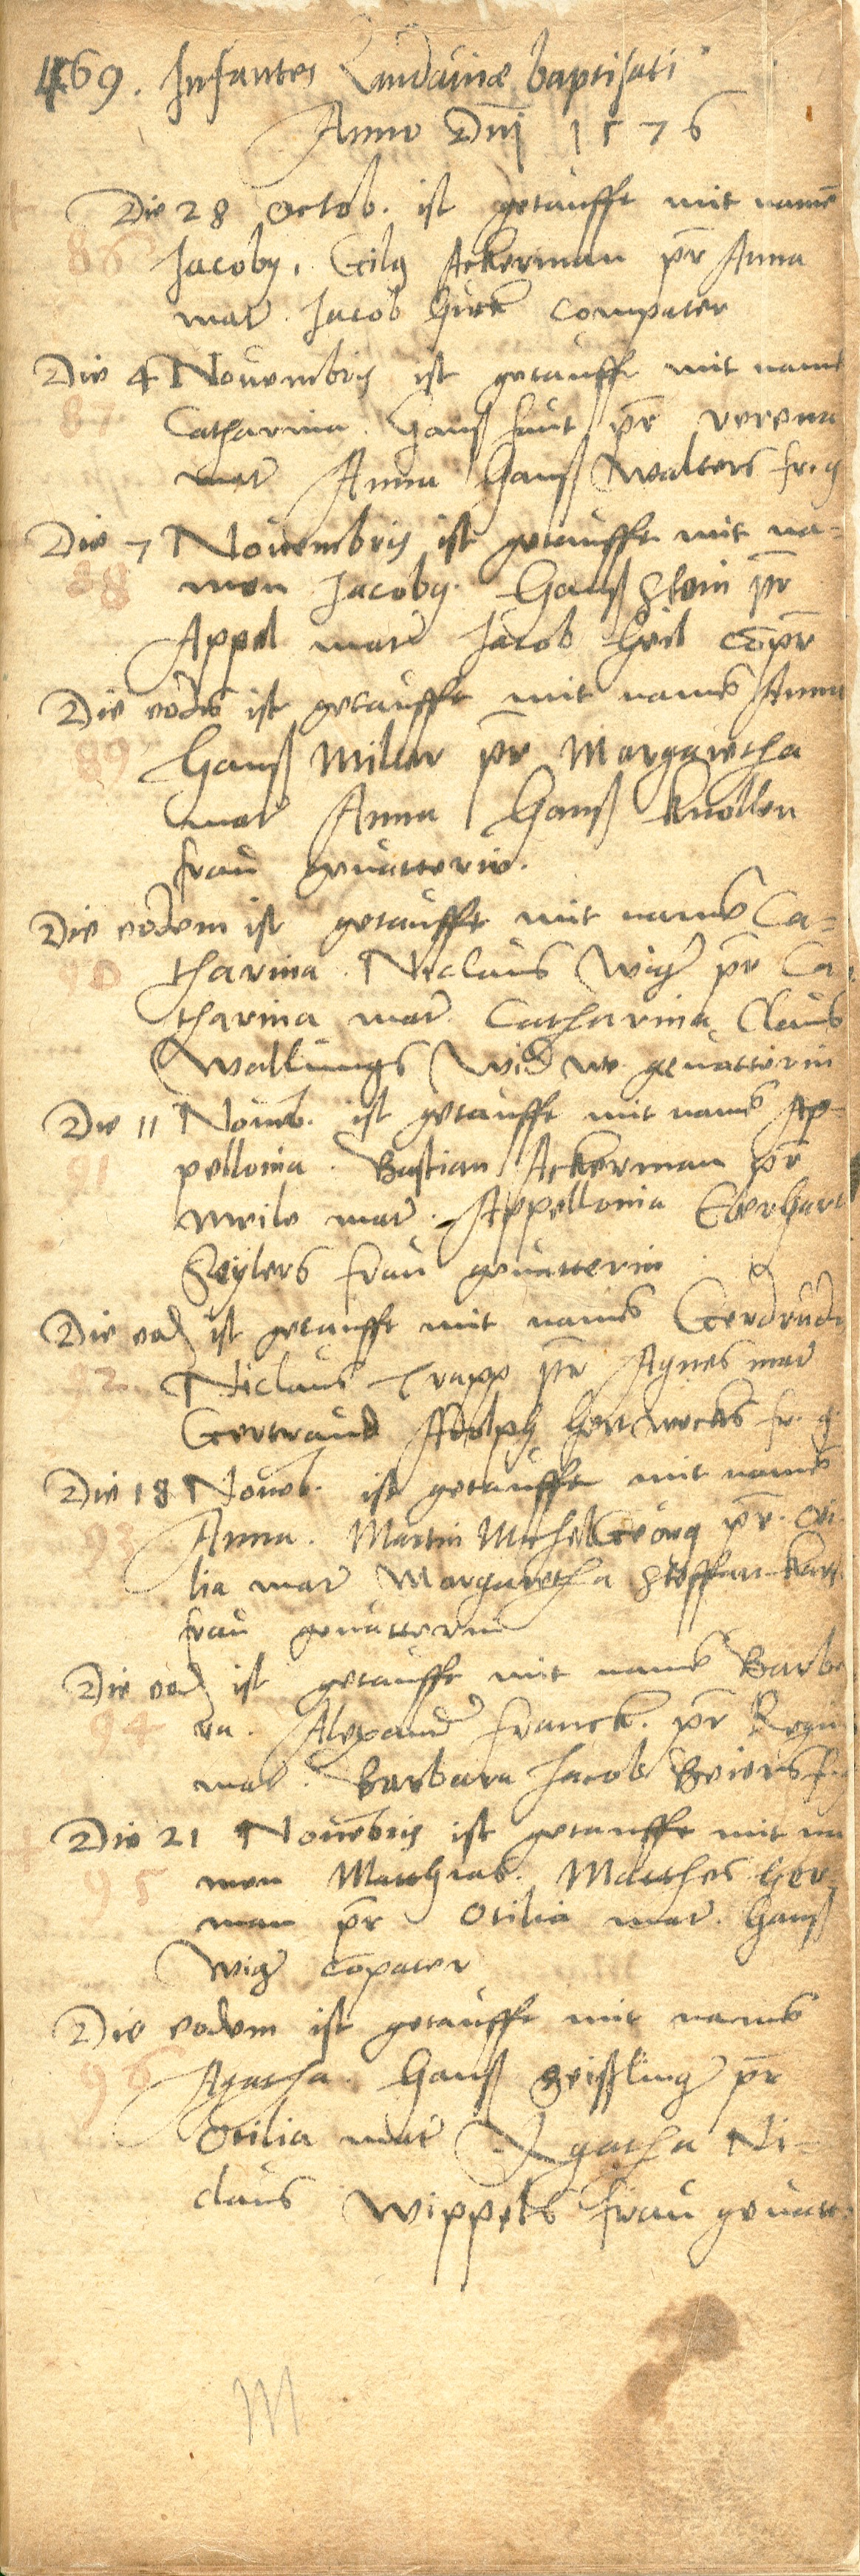 469. Infantes Landauiæ baptisati
Anno Dnj 1576
Die 28 Octob. ist getaufft mit namē
86 Jacoby. Gilg Ackerman pr̄ Anna
mar̄. Jacob compater
Die 4 Nouembris ist getaufft mit namē
87 Catharina. Hanß Haut pr̄ Verena
mar̄ Anna Hanß Walters fr. g
Die 7 Nouembris ist getaufft mit na=
88 men Jacoby. Hanß Stein pr̄
Appel mar̄ Jacob Heil cōpr̄
Die eodē ist getaufft mit namē Anna
89 Hanß Miller pr̄ Margaretha
mar̄ Anna Hanß Knollen
frau geuatterin.
Die eodem ist getaufft mit namē Ca=
90 tharina. Niclaus pr̄ Ca=
tharina mar̄. Catharina Claus
Wallungs Widwe geuatterin
Die 11 Nouēb. ist getaufft mit namē Ap=
91 pellonia. Bastian Ackerman pr̄
mar̄. Appellonia Eberhart
Seylers frau geuatterin
Die eod ist getaufft mit namē Gerdrudt
92 Niclaus Trapp pr̄ Agnes mar̄
Gertraud Adolph fr. g.
Die 18 Nouēb. ist getaufft mit namē
93 Anna. Martin Michel Georg pr̄. Oti
lia mar̄ Margaretha Steffan
frau geuatterin
Die eod ist getaufft mit namē Barba
94 ra. Alexander Franck. pr̄ Regin
mar̄. Barbara Jacob Beiers f. g
Die 21 Nouēbris ist getaufft mit na
95 men Matthias. Matthes Her
man pr̄ Otilia mar̄. Hanß
cōpater
Die eodem ist getaufft mit namē
96 Agatha. Hanß Geißlinger pr̄
Otilia mar̄ Agatha Ni=
claus Wippels frau geuatt.
M